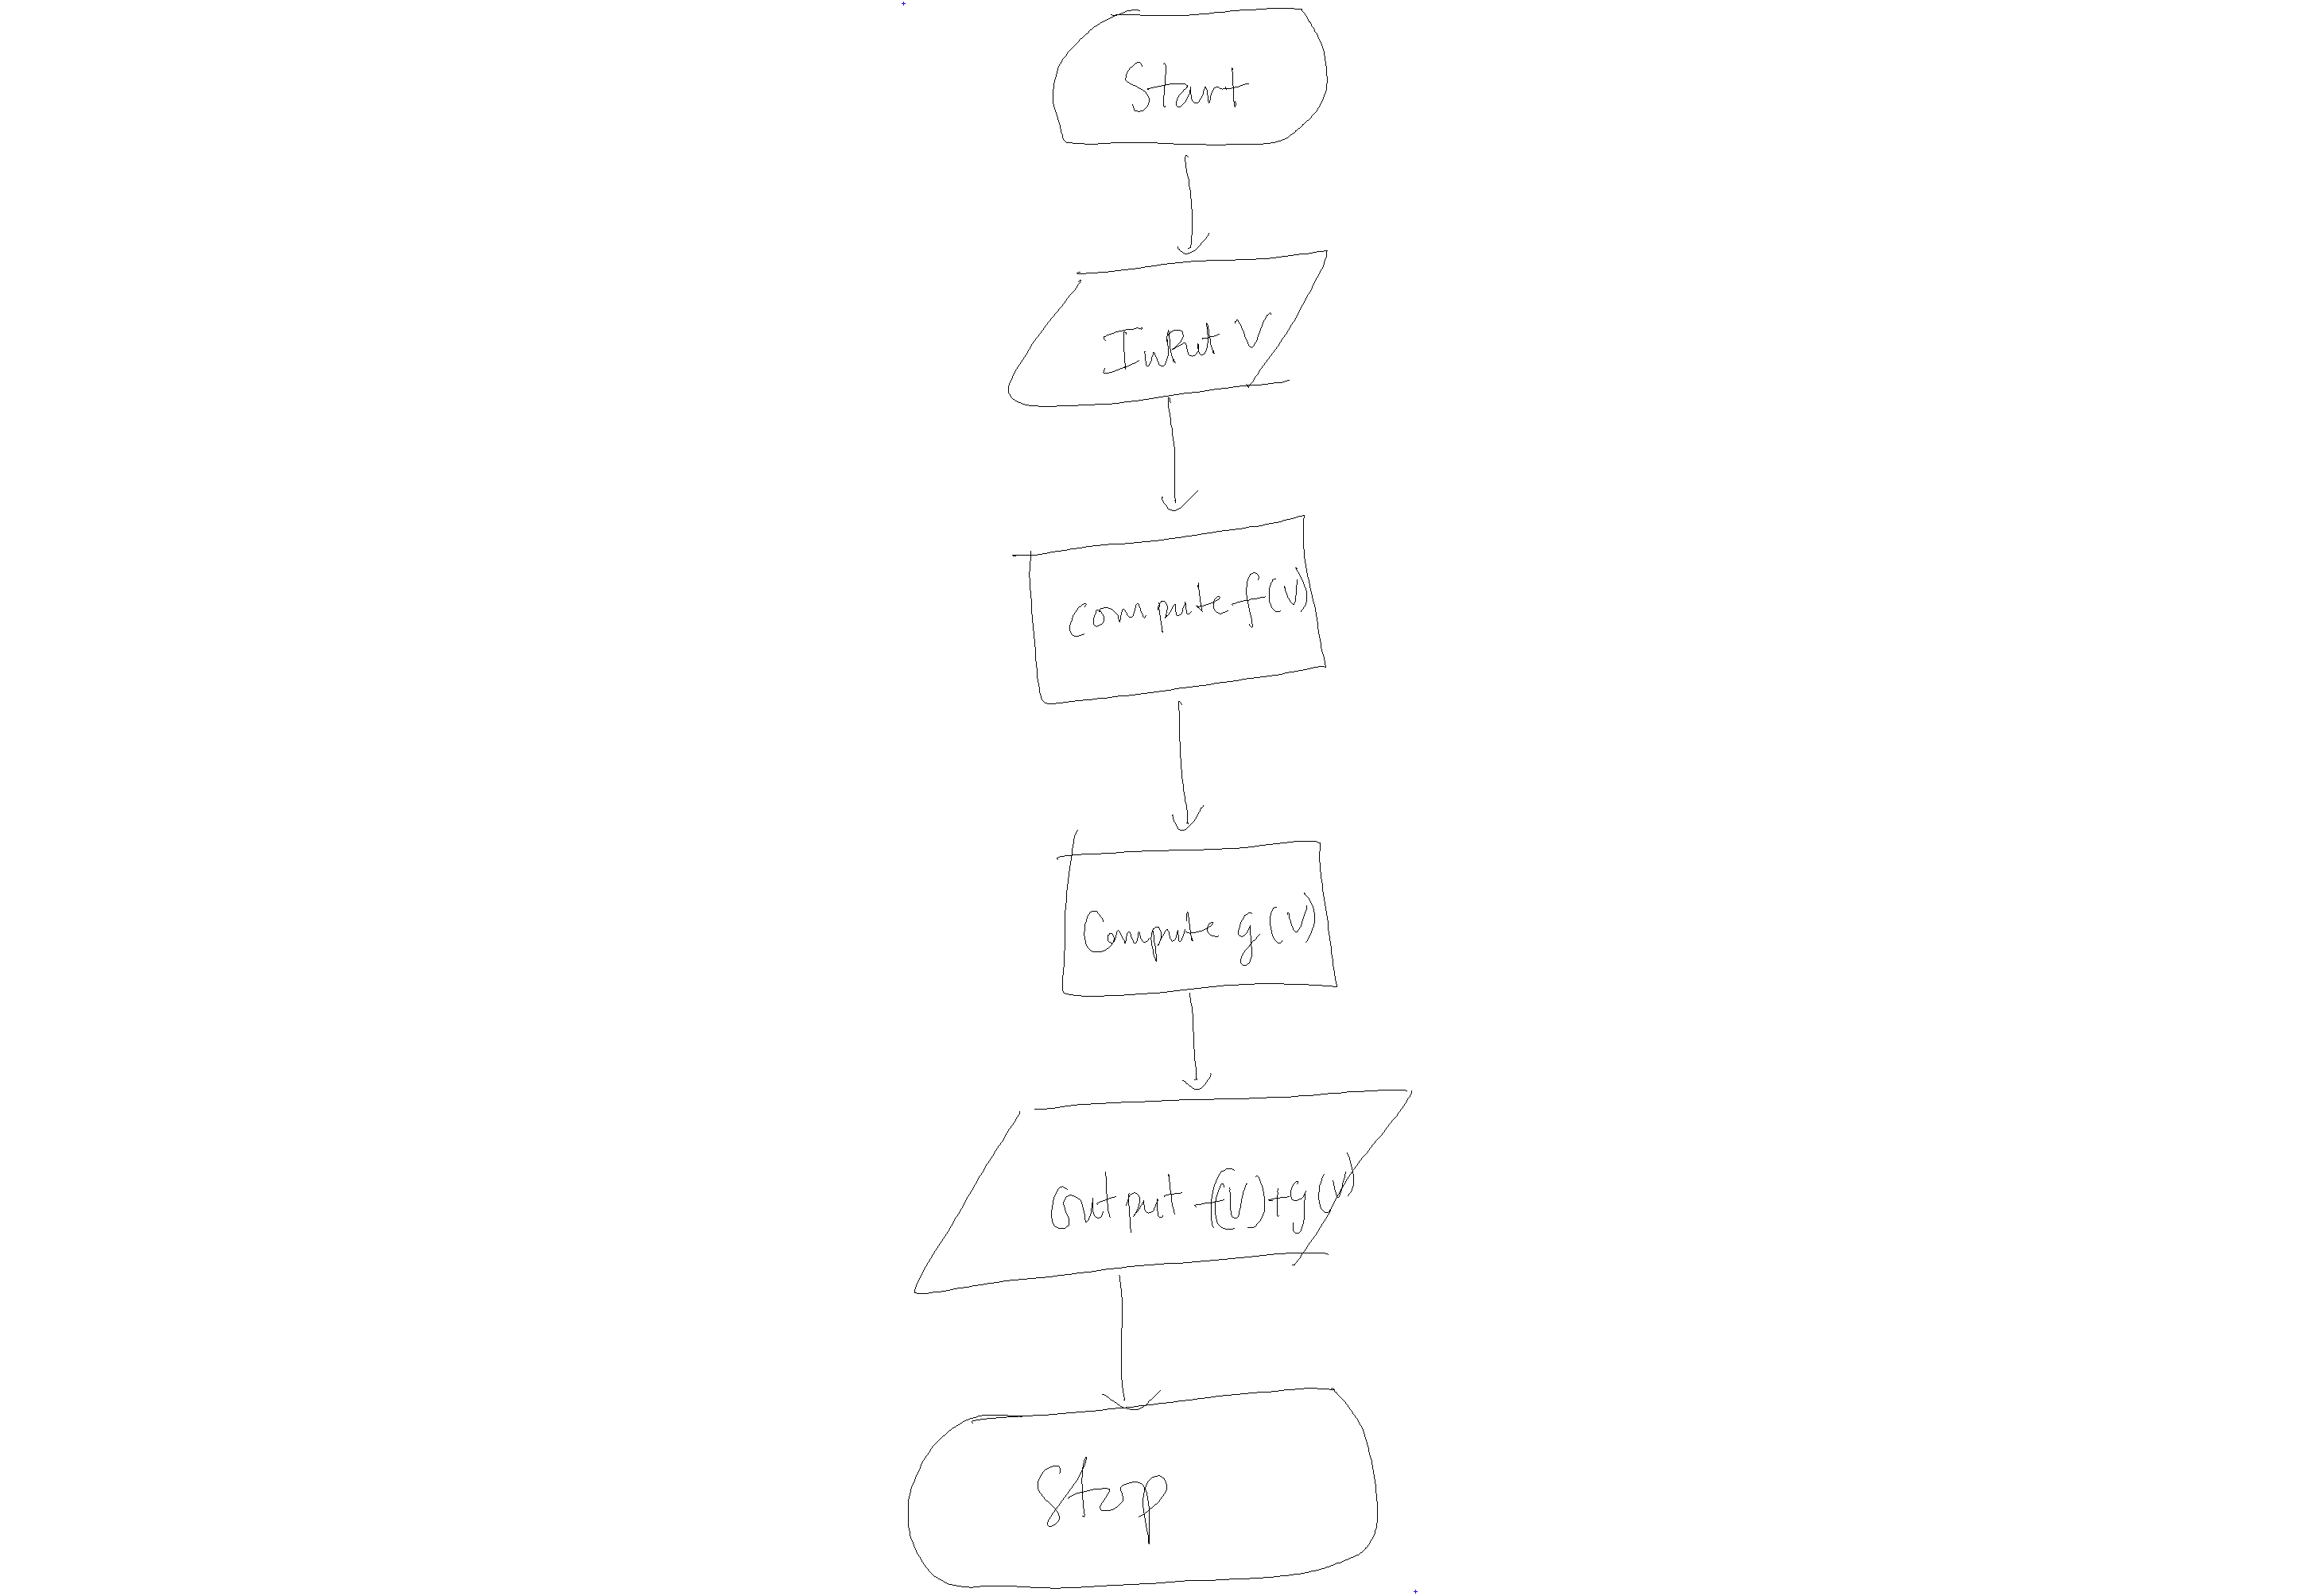 Start
Input V
compute f(V)
Compute g(V)
output f(V)+g(V)
Stop